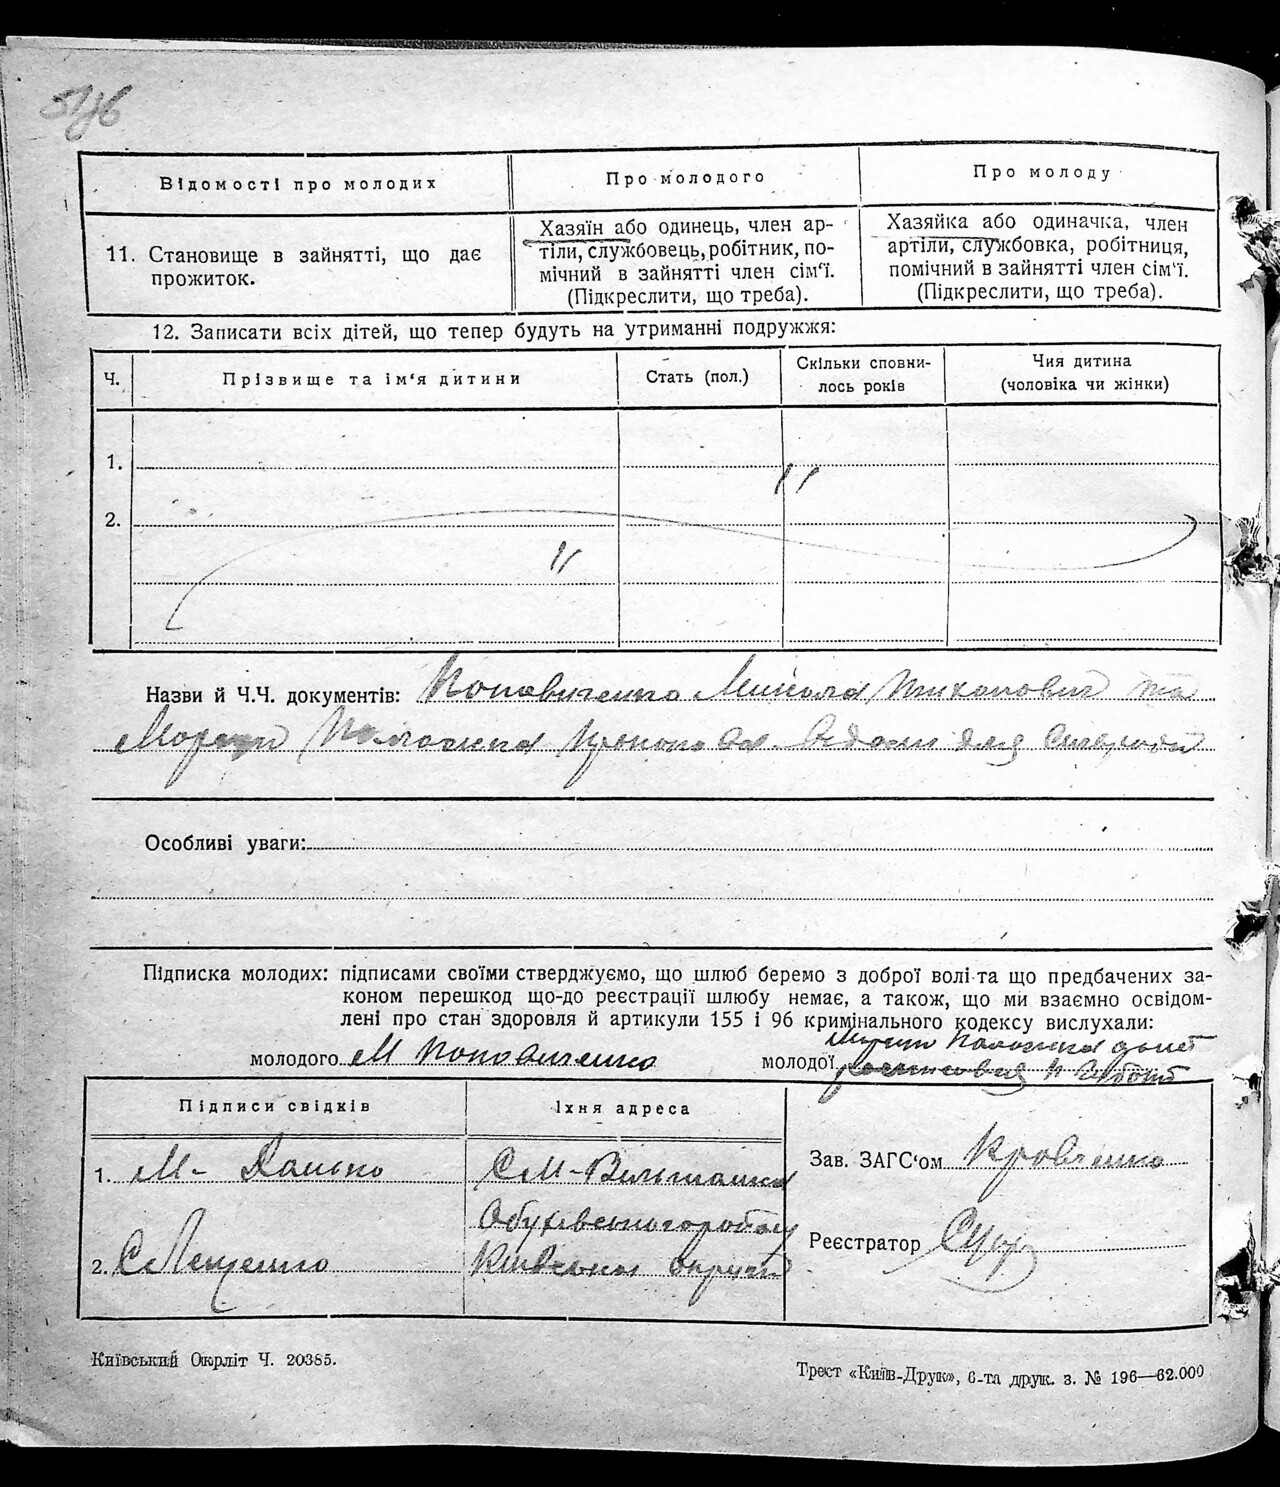 Відомості про молодих
Про молодого
Про молоду
11. Становище в зайнятті, що дає
прожиток.
Хазяїн або одинець, член ар-
тіли, службовець, робітник, по-
мічний в зайнятті член сім‘ї.
(Підкреслити, що треба).
Хазяйка або одиначка, член
артіли, службовка, робітниця,
помічний в зайнятті член сім‘ї.
(Підкреслити, що треба).
12. Записати всіх дітей, що тепер будуть на утриманні подружжя:
Ч.
Прізвище та ім‘я дитини
Стать (пол.)
Скільки сповни-
лось років
Чия дитина
(чоловіка чи жінки)
1.
2.
Назви й Ч.Ч. документів: Поповиченко Микола та
Особливі уваги:
Підписка молодих: підписами своїми стверджуємо, що шлюб беремо з доброї волі та що предбачених за-
коном перешкод що-до реєстрації шлюбу немає, а також, що ми взаємно освідом-
лені про стан здоровля й артикули 155 і 96 кримінального кодексу вислухали:
молодого М Поповиченко
молодої
Підписи свідків
Їхня адреса
1. М-
С М-Вільшанка
Обухівського району
2. С Лещенко
Київської округи
Зав. ЗАГС‘ом Кравченко
Реєстратор
Київський Окрліт Ч. 20385.
Трест «Київ-Друк», 6-та друк. з. № 196—62.000